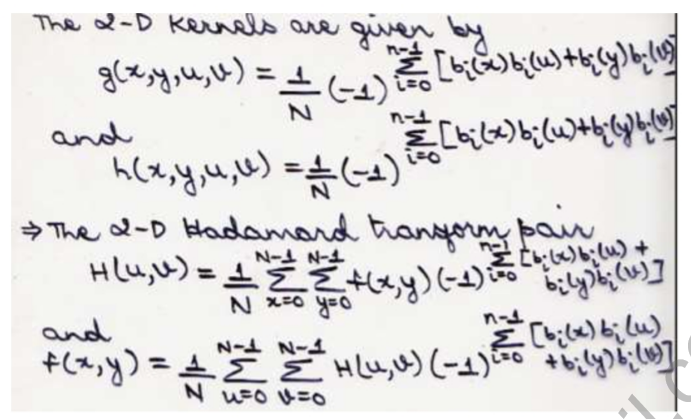 The 2-D Kernels are given by
g(x,y,u,v) = 1/N (-1)^{\sum_{i=0}^{n-1} [b_i(x)b_i(u)+b_i(y)b_i(v)]}
and
h(x,y,u,v) = 1/N (-1)^{\sum_{i=0}^{n-1} [b_i(x)b_i(u)+b_i(y)b_i(v)]}
⇒ The 2-D Hadamard transform pair
H(u,v) = 1/N \sum_{x=0}^{N-1} \sum_{y=0}^{N-1} f(x,y) (-1)^{\sum_{i=0}^{n-1} [b_i(x)b_i(u) + b_i(y)b_i(v)]}
and
f(x,y) = 1/N \sum_{u=0}^{N-1} \sum_{v=0}^{N-1} H(u,v) (-1)^{\sum_{i=0}^{n-1} [b_i(x)b_i(u) + b_i(y)b_i(v)]}